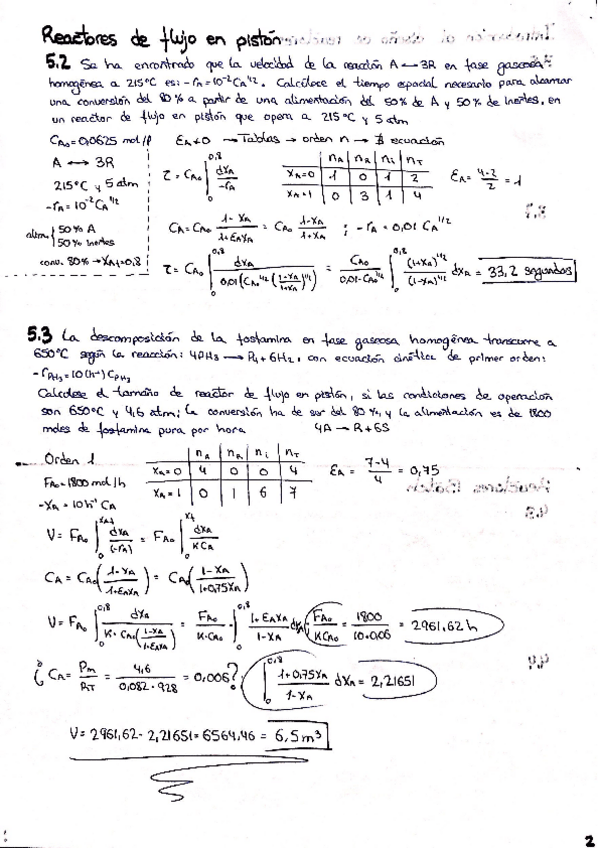 Reactores de flujo en pistón
5.2 Se ha encontrado que la velocidad de la reacción A ⟷ 3R en fase gaseosa
homogénea a 215°C es: -rA = 10⁻² CA^1/2. Calcúlese el tiempo espacial necesario para alcanzar
una conversión del 80% a partir de una alimentación del 50% de A y 50% de Inertes, en
un reactor de flujo en pistón que opera a 215°C y 5 atm
CA0 = 0,0625 mol/l
εA ≠ 0 → Tablas → orden n → ecuación
A ⟷ 3R
215°C y 5 atm
-rA = 10⁻² CA^1/2
alim. { 50% A
50% Inertes
conv. 80% → XAf = 0,8
τ = CA0 ∫₀^0,8 dXA/-rA
nA nR ni nT
XA=0 1 0 1 2
XA=1 0 3 1 4
εA = (4-2)/2 = 1
CA = CA0 (1-XA)/(1+εAXA) = CA0 (1-XA)/(1+XA) ; -rA = 0,01 CA^1/2
τ = CA0 ∫₀^0,8 dXA/(0,01 (CA0^1/2 ((1-XA)/(1+XA))^1/2)) = CA0/(0,01·CA0^1/2) ∫₀^0,8 (1+XA)^1/2/(1-XA)^1/2 dXA = 33,2 segundos
5.3 La descomposición de la fosfamina en fase gaseosa homogénea transcurre a
650°C según la reacción: 4PH3 → P4 + 6H2, con ecuación cinética de primer orden:
-rPH3 = 10 (h⁻¹) CPH3
Calcúlese el tamaño de reactor de flujo en pistón, si las condiciones de operación
son 650°C y 4,6 atm; la conversión ha de ser del 80%, y la alimentación es de 1800
moles de fosfamina pura por hora
4A → R + 6S
Orden 1
FA0 = 1800 mol/h
-XA = 10 h⁻¹ CA
nA nR ni nT
XA=0 4 0 0 4
XA=1 0 1 6 7
εA = (7-4)/4 = 0,75
V = FA0 ∫₀^XAf dXA/(-rA) = FA0 ∫₀^Xf dXA/KCA
CA = CA0 ((1-XA)/(1+εAXA)) = CA0 ((1-XA)/(1+0,75XA))
V = FA0 ∫₀^0,8 dXA/(K·CA0((1-XA)/(1+εAXA))) = FA0/(K·CA0) · ∫₀^0,8 (1+εAXA)/(1-XA) dXA; FA0/KCA0 = 1800/(10·0,06) = 2961,62 h
¿CA = Pm/RT = 4,6/(0,082·928) = 0,006?
∫₀^0,8 (1+0,75XA)/(1-XA) dXA = 2,21651
V = 2961,62 · 2,21651 = 6564,46 = 6,5 m³
2